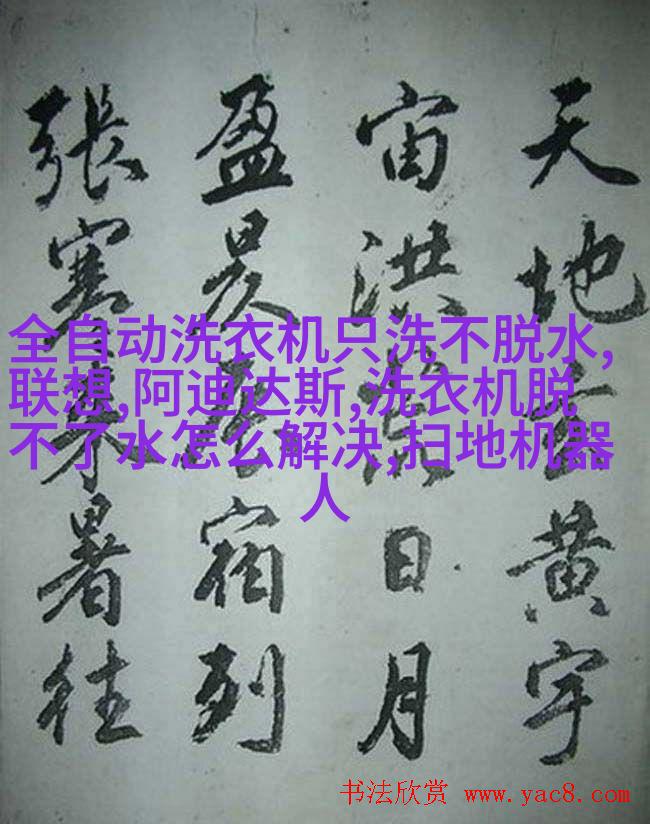 天地黄宇
宙洪日月
盈昃宿列
張寒暑往
全自动洗衣机只洗不脱水,
联想,阿迪达斯,洗衣机脱
不了水怎么解决,扫地机器
人
书法欣赏 www.yac8.com